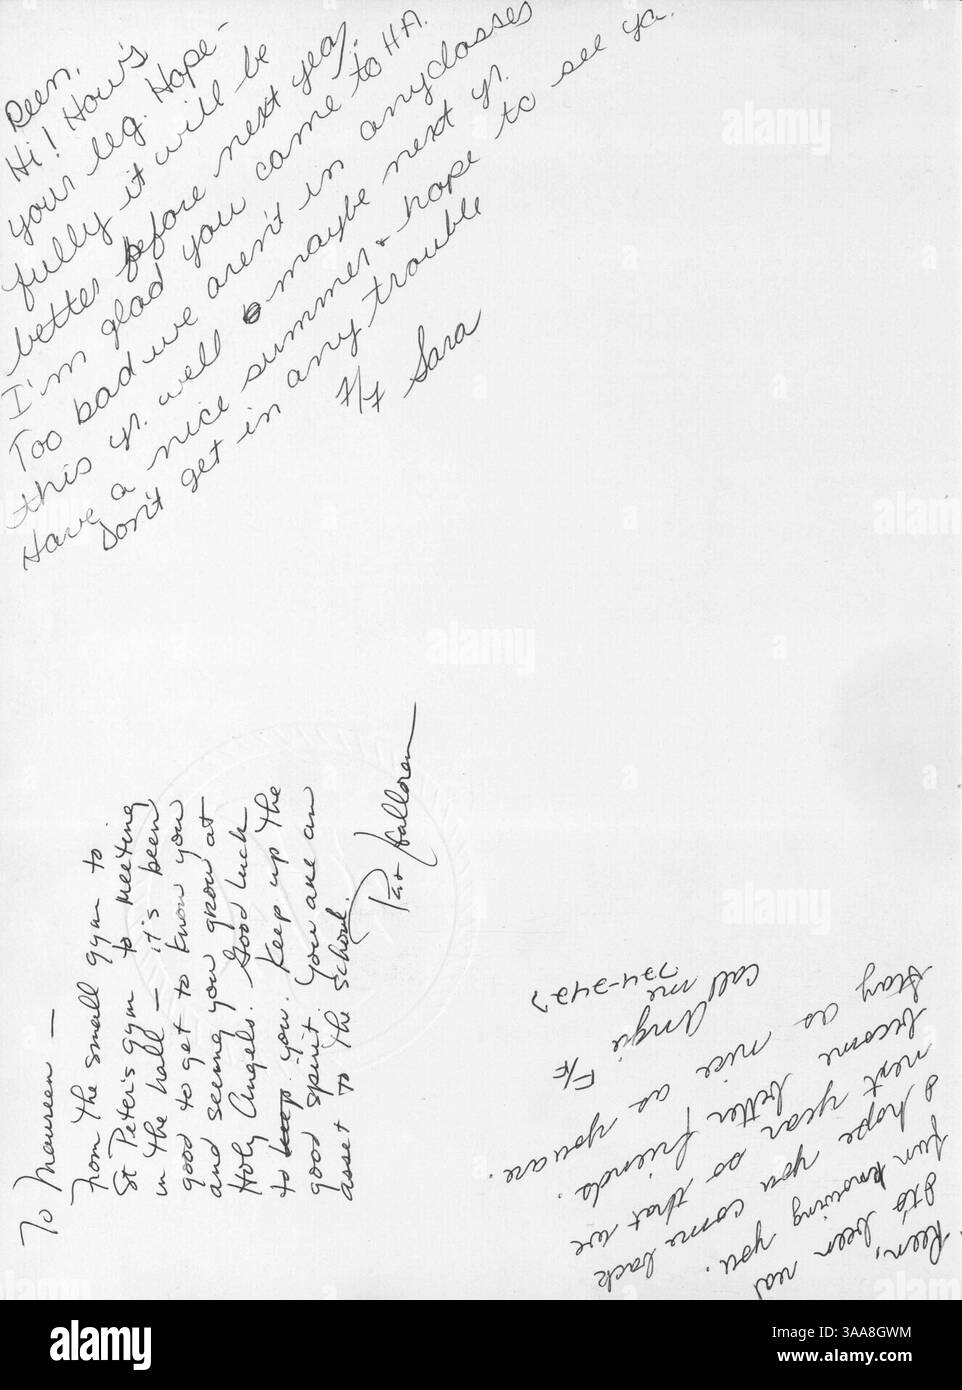 Reen,
Hi! How's
your leg. Hope-
fully it will be
better before next year.
I'm glad you came to H.A.
Too bad we aren't in any classes
this yr. well maybe next yr.
Have a nice summer & hope to see ya.
Don't get in any trouble
F/F Sara
To Maureen —
From the small gym to
St Peter's gym to meeting
in the hall — it's been
good to get to know you
and seeing you grow at
Holy Angels. Good luck
to keep you. Keep up the
good spirit. You are an
asset to the school.
Pat Halloran
Reen,
It's been real
fun knowing you.
I hope you come back
next year so that we
become better friends.
Stay as nice as you are.
F/F
Angie
call me
724-2427
alamy
Image ID: 3AA8GWM
www.alamy.com